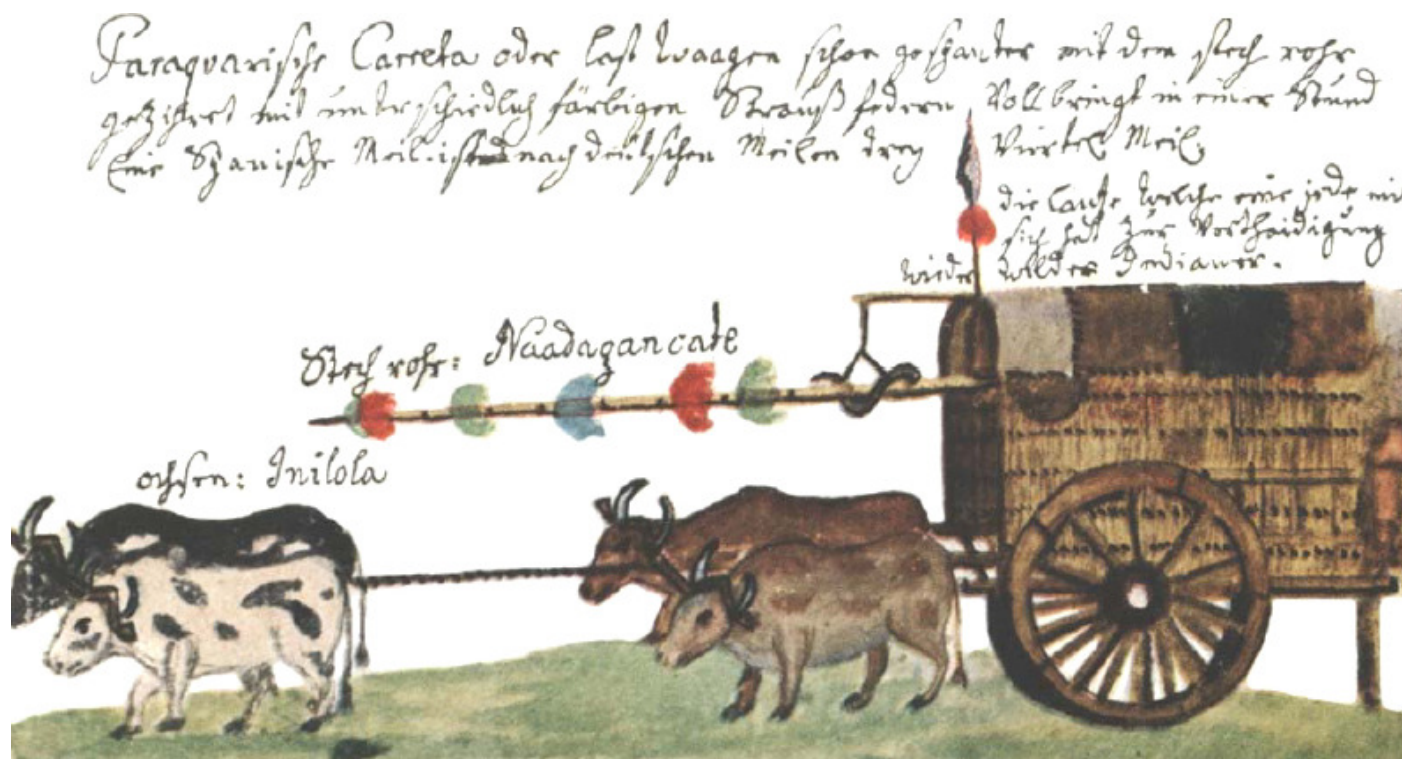 Paraquarische Carreta oder last waagen schon gespanter mit dem stech rohr
gezihret mit unterschiedlich färbigen Strauß federn Vollbringt in einer Stund
Eine Spanische Meil. ist nach deütschen Meilen drey Viertel Meil.
die lantze welche eine jede mit
sich hat zur Vorthaidigung
wieder wilder Indianer.
Stech rohr: Naadagancate
ochsen: Inilola